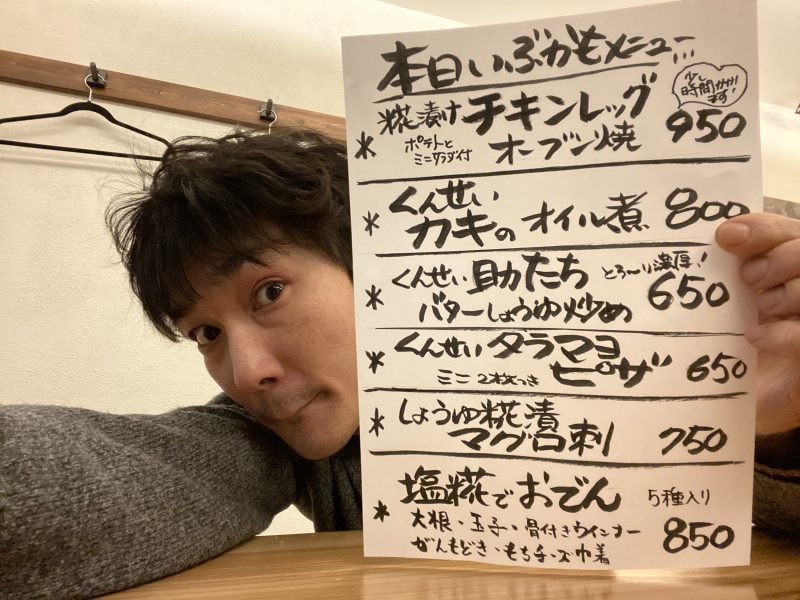 本日いぶかもメニュー...
少し
時間かかり
ます!
糀漬けチキンレッグ
＊ ポテトと
ミニサラダ付
オーブン焼 950
＊ くんせい
カキのオイル煮 800
＊ くんせい 助たち とろ〜り濃厚!
バターしょうゆ炒め 650
＊ くんせいタラマヨ
ミニ2枚つき ピザ 650
＊ しょうゆ糀漬
マグロ刺 750
＊ 塩糀でおでん 5種入り
大根・玉子・骨付きウインナー
がんもどき・もちチーズ巾着 850